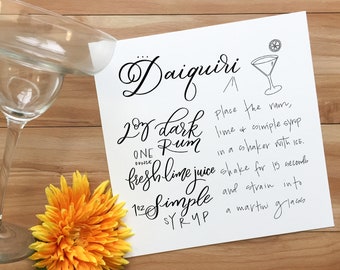 Daiquiri
2oz dark
Rum
ONE
OUNCE
fresh lime juice
1oz Simple
SYRUP
place the rum,
lime & simple syrup
in a shaker with ice.
shake for 15 seconds
and strain into
a martini glass